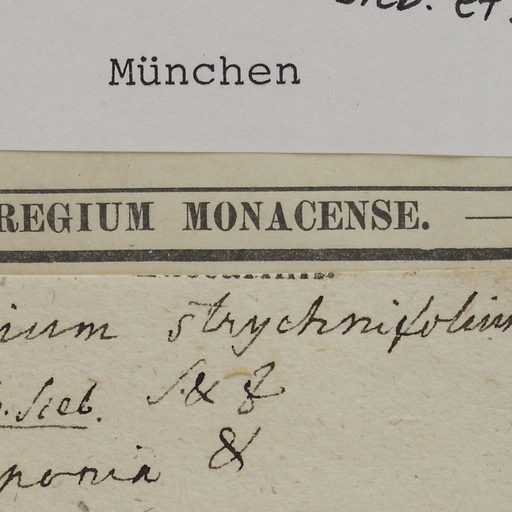 Sieb. et
München
REGIUM MONACENSE.
ium strychnifolium
Sieb. S. & Z
ponia &